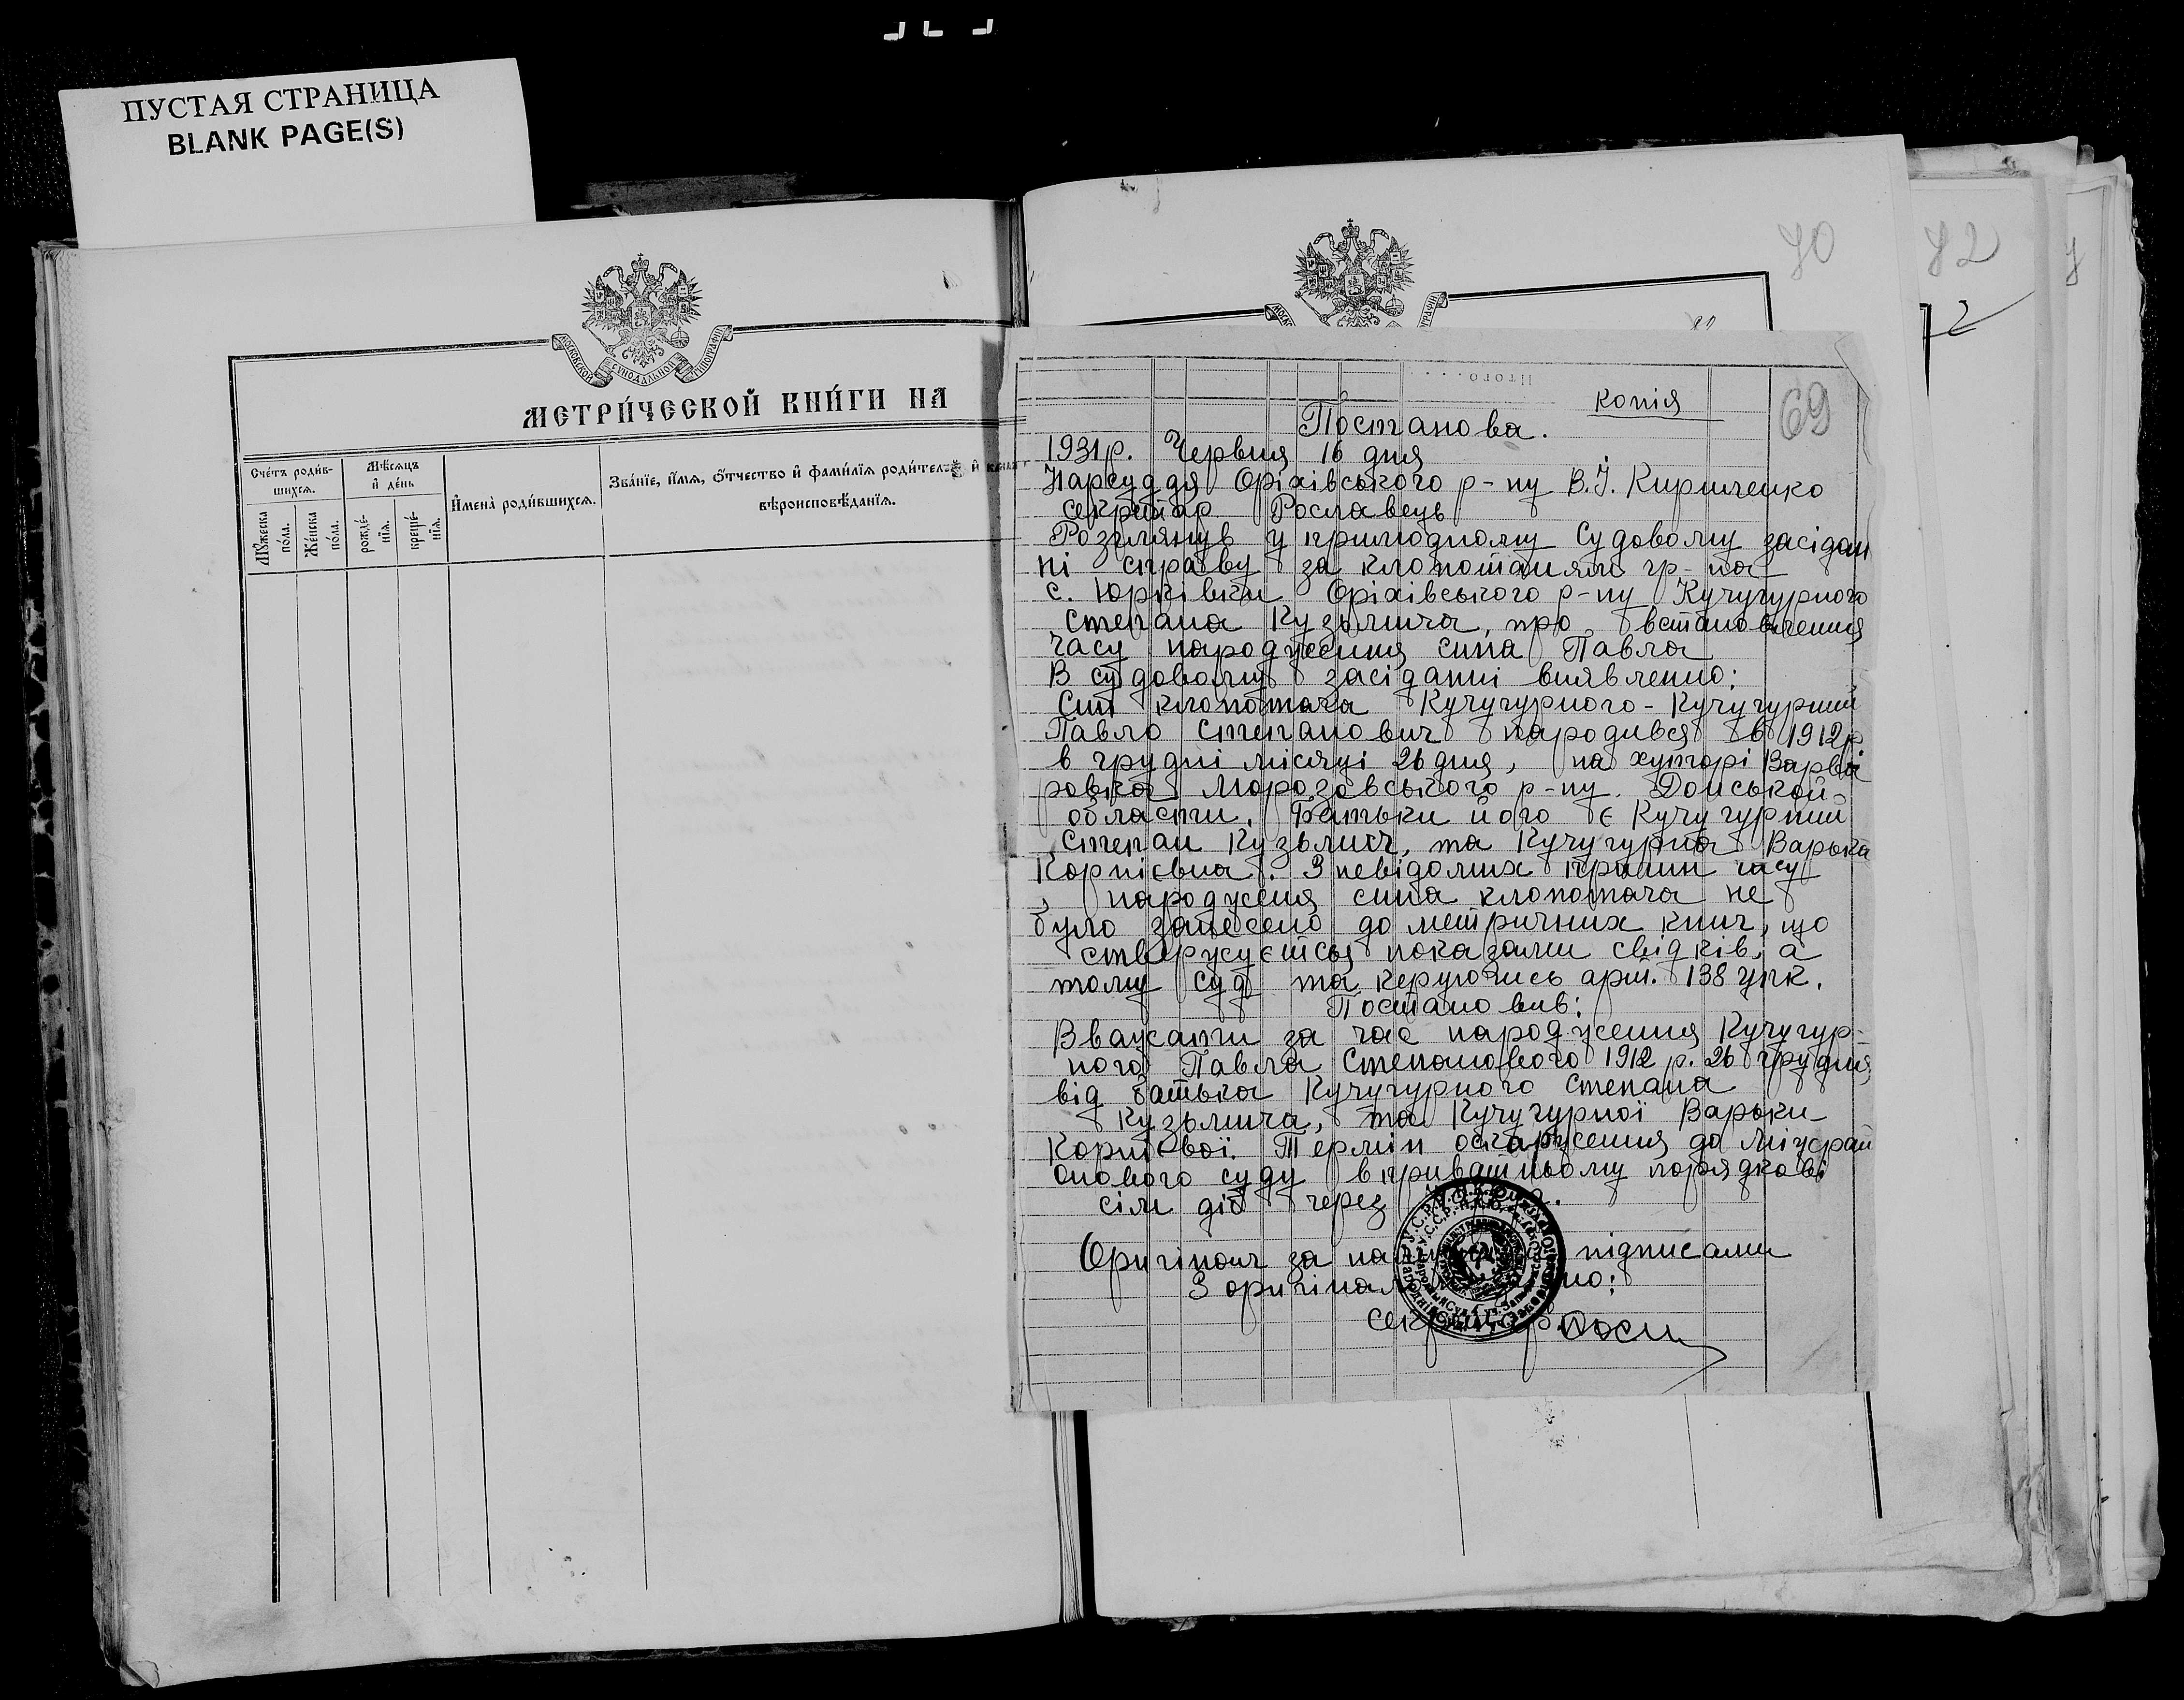 ПУСТАЯ СТРАНИЦА
BLANK PAGE(S)
МОСКОВСКОЙ СѴНОДАЛЬНОЙ ТИПОГРАФІИ
МЕТРИ́ЧЕСКОЙ КНИ́ГИ НА
Сче́тъ роди́в-
шихсѧ.
Мꙋ́жеска по́ла.
Же́нска по́ла.
Мѣ́сѧцъ
и҆ де́нь
рожде́-
нїѧ.
креще́-
нїѧ.
И҆мена̀ роди́вшихсѧ.
Зва́нїе, и҆́мѧ, ѻ҆́тчество и҆ фами́лїѧ роди́телей, и҆
вѣроисповѣ́данїѧ.
70
72
69
Итого
копія
Постанова.
1931р. Червня 16 дня
Нарсуддя Оріхівського р-ну В.І. Кириченко
секретар Рославець
Розглянув у прилюдному судовому засідан
ні справу за клопотанням гр-на
с. Юрківки Оріхівського р-ну Кучугурного
Степана Кузьмича, про встановлення
часу народження сина Павла
В судовому засіданні виявлено:
Син клопотача Кучугурного - Кучугурний
Павло Степанович народився в 1912р
в грудні місяці 26 дня, на хуторі Варва
ровка Морозовського р-ну. Донськой
области. Батьки його є Кучугурний
Степан Кузьмич, та Кучугурна Варька
Корнієвна. З невідомих причин часу
народженя сина клопотача не
було занесено до метричних книг, що
ствержується показами свідків, а
тому суд та керуючись арт. 138 УПК.
Постановив:
Вважати за час народження Кучугур-
ного Павла Степанового 1912 р. 26 грудня
від батька Кучугурного Степана
Кузьмича, та Кучугурної Варьки
Корнієвої. Термін оскарження до міжрай
онового суду в приватньому порядкові
сім діб через
Оригінал за підписами
З оригіналом
секретар